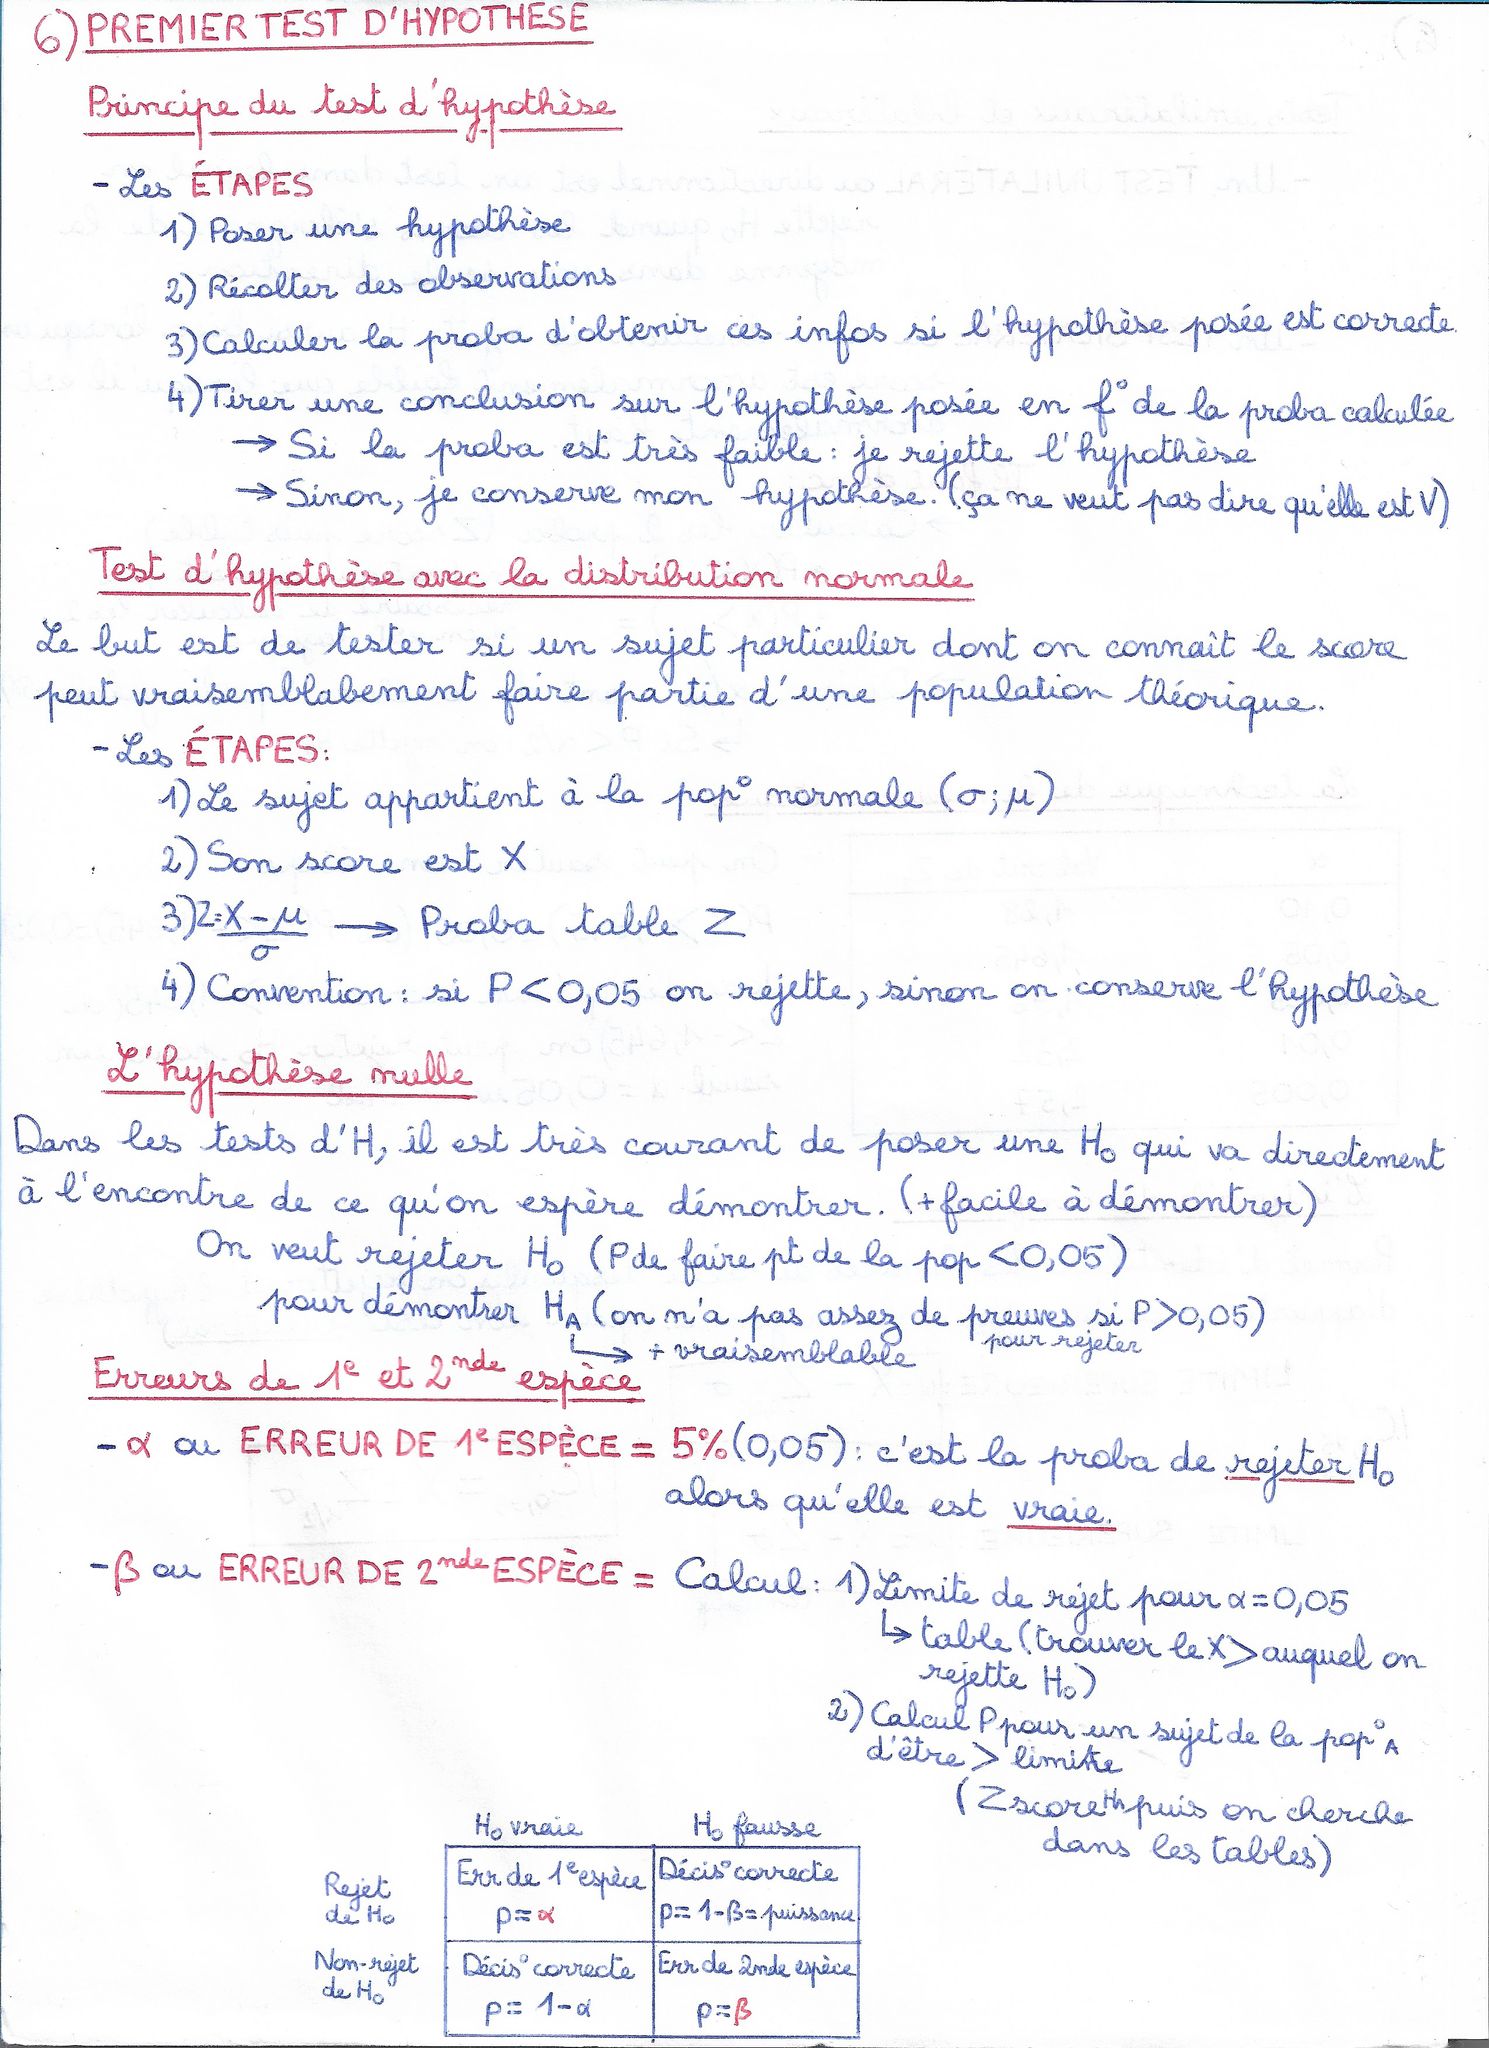 6) PREMIER TEST D'HYPOTHESE
Principe du test d'hypothèse
- Les ÉTAPES
1) Poser une hypothèse
2) Récolter des observations
3) Calculer la proba d'obtenir ces infos si l'hypothèse posée est correcte.
4) Tirer une conclusion sur l'hypothèse posée en f° de la proba calculée
→ Si la proba est très faible : je rejette l'hypothèse
→ Sinon, je conserve mon hypothèse. (ça ne veut pas dire qu'elle est V)
Test d'hypothèse avec la distribution normale
Le but est de tester si un sujet particulier dont on connaît le score
peut vraisemblabement faire partie d'une population théorique.
- Les ÉTAPES :
1) Le sujet appartient à la pop° normale (σ ; μ)
2) Son score est X
3) Z = X - μ / σ → Proba table Z
4) Convention : si P < 0,05 on rejette, sinon on conserve l'hypothèse
L'hypothèse nulle
Dans les tests d'H, il est très courant de poser une H₀ qui va directement
à l'encontre de ce qu'on espère démontrer. (+ facile à démontrer)
On veut rejeter H₀ (P de faire pt de la pop < 0,05)
pour démontrer H_A (on n'a pas assez de preuves si P > 0,05)
pour rejeter
↳ + vraisemblable
Erreurs de 1e et 2nde espèce
- α ou ERREUR DE 1e ESPÈCE = 5% (0,05) : c'est la proba de rejeter H₀
alors qu'elle est vraie.
- β ou ERREUR DE 2nde ESPÈCE = Calcul : 1) Limite de rejet pour α = 0,05
↳ table (trouver le X > auquel on
rejette H₀)
2) Calcul P pour un sujet de la pop°A
d'être > limite
(Z score puis on cherche
dans les tables)
H₀ vraie H₀ fausse
Rejet de H₀
Err de 1e espèce
p = α
Décis° correcte
p = 1-β = puissance
Non-rejet de H₀
Décis° correcte
p = 1-α
Err de 2nde espèce
p = β